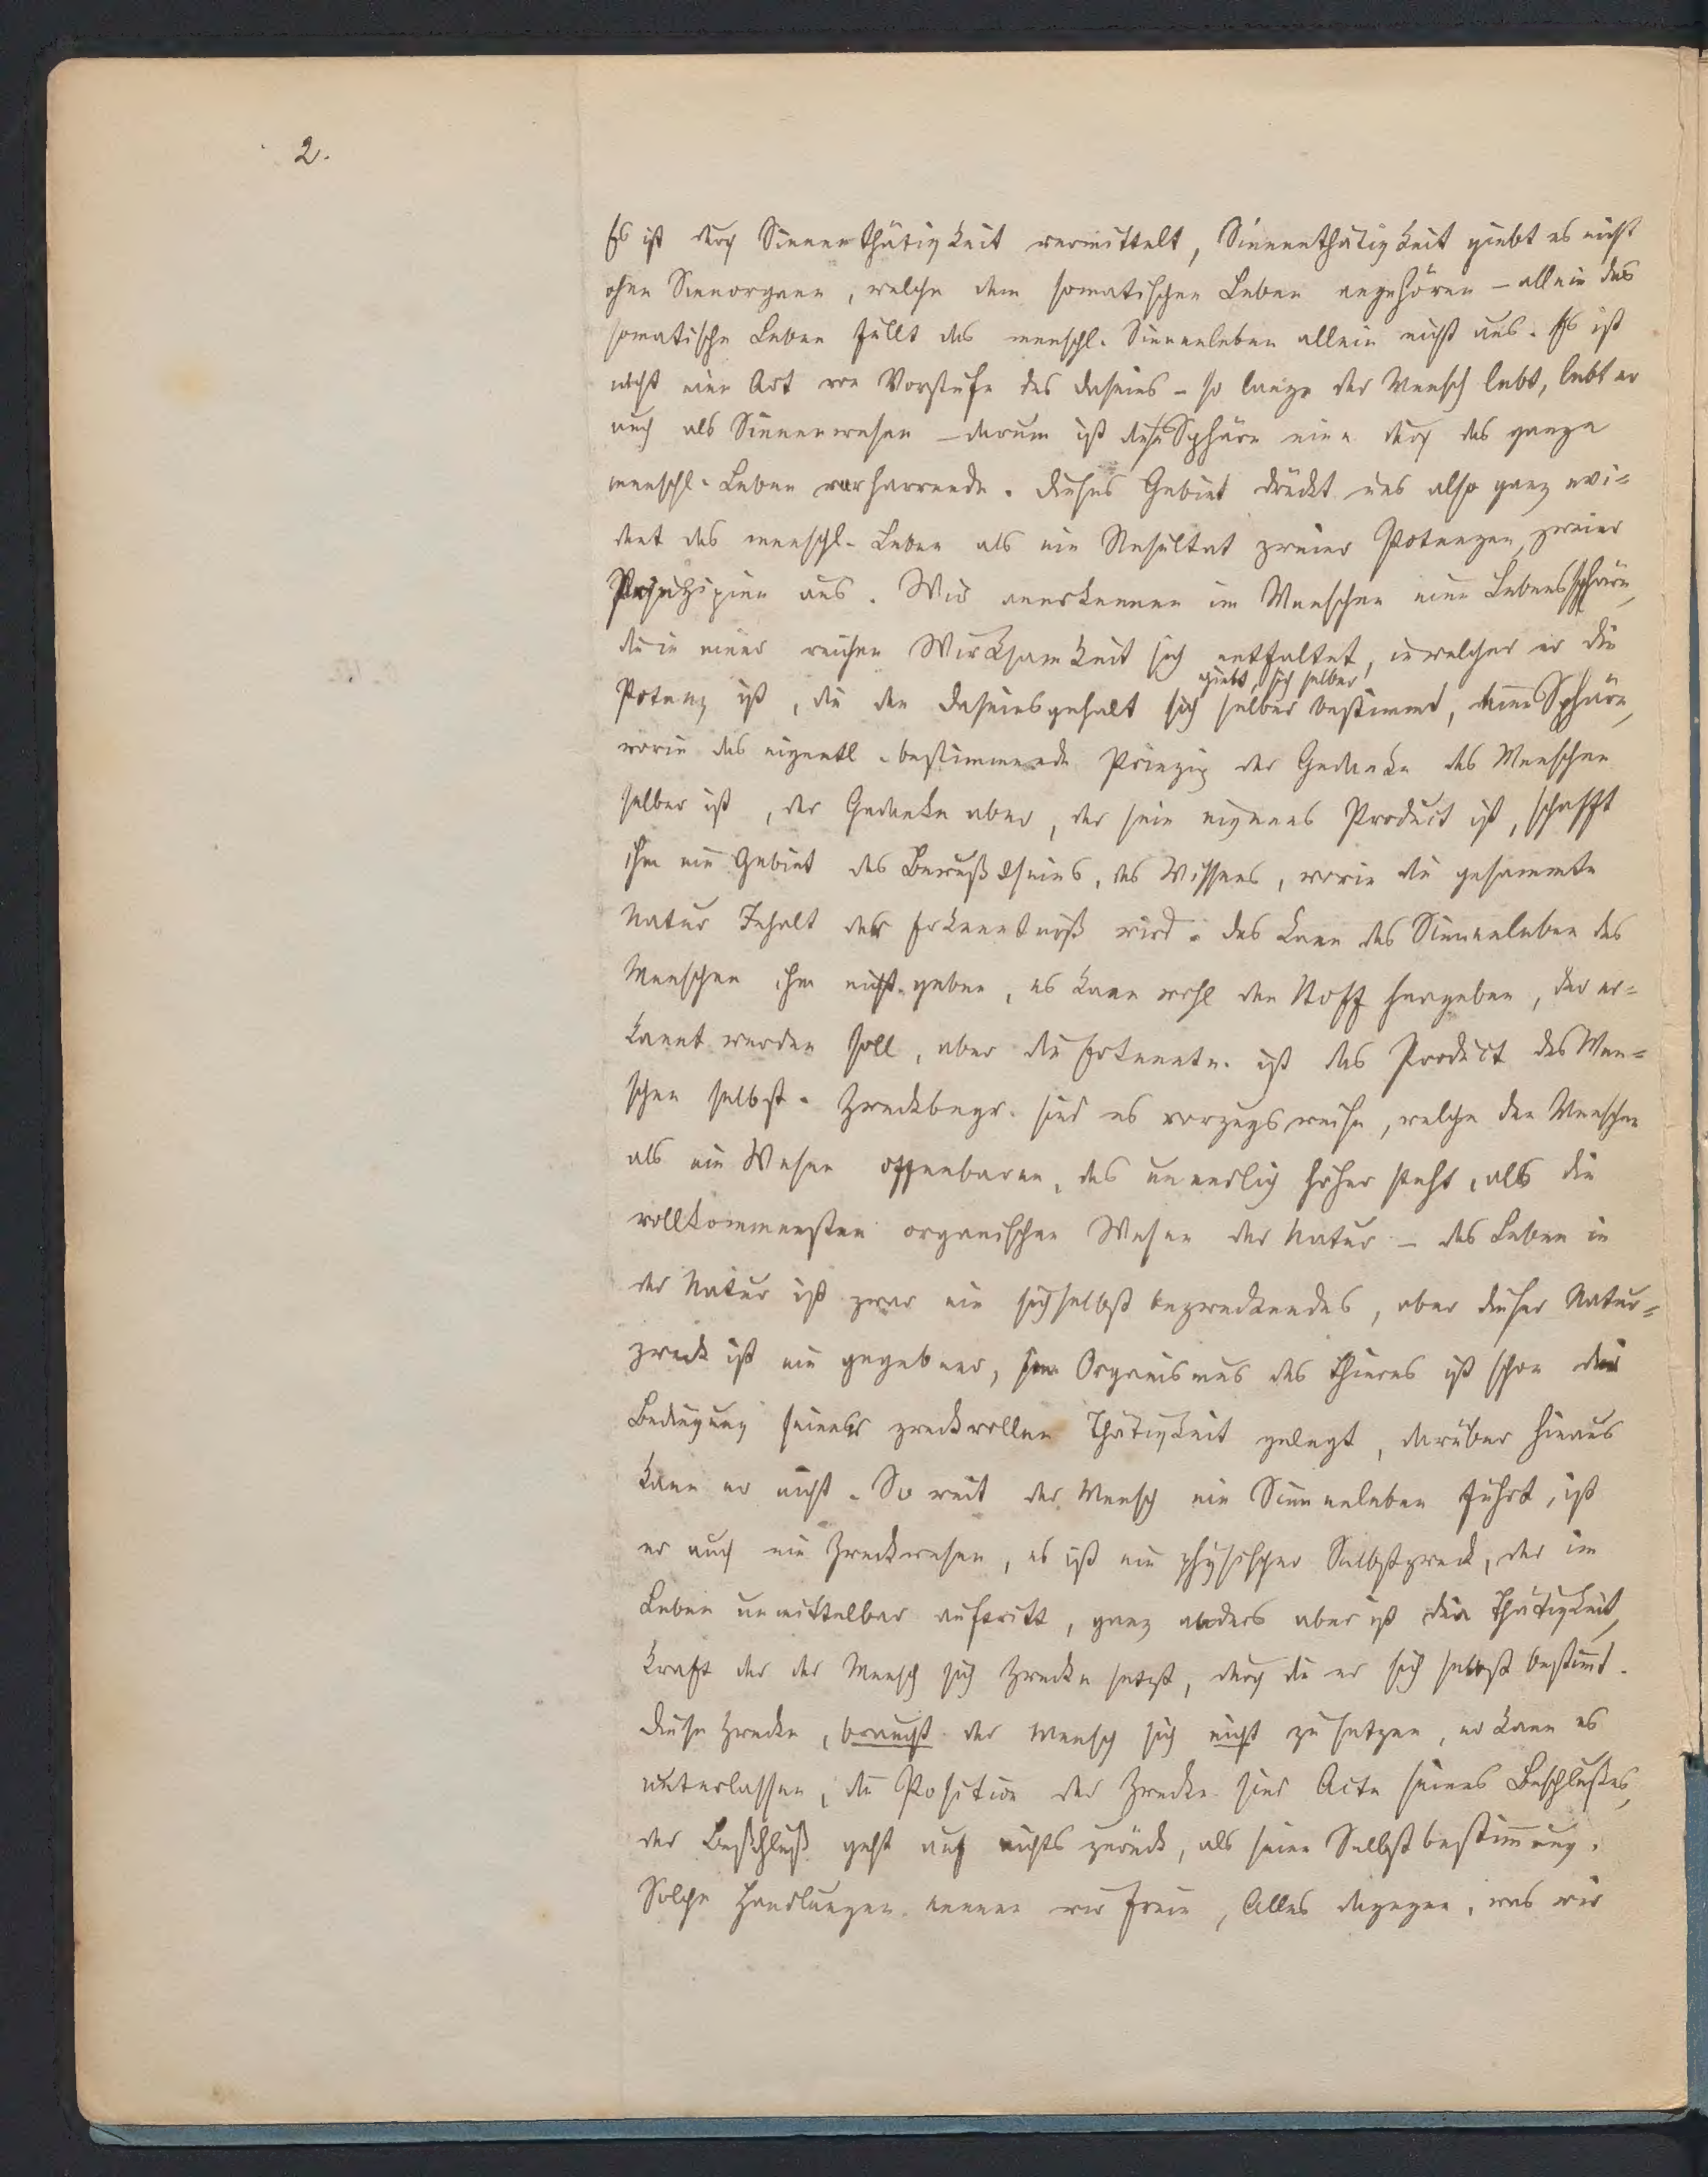 2.
Es ist durch Sinnenthätigkeit vermittelt, Sinnenthätigkeit giebt es nicht
ohne Sinnorgane, welche dem somatischen Leben angehören – allein das
somatische Leben füllt das menschl. Sinnenleben allein nicht aus. Es ist
nicht eine Art von Vorstufe des Daseins – so lange der Mensch lebt, lebt er
auch als Sinnenwesen – darum ist diese Sphäre eine durch das ganze
menschl. Leben verharrende. Dieses Gebiet drückt uns also ganz evi=
dent das menschl. Leben als ein Resultat zweier Potenzen, zweier
Prinzipien aus. Wir anerkennen im Menschen eine Lebenssphäre,
die in einer reichen Wirksamkeit sich entfaltet, in welcher er die
giebt, sich selber
Potenz ist, die den Daseinsgehalt sich selber bestimmt, eine Sphäre,
worin das eigentl. bestimmende Prinzip der Gedanke des Menschen
selber ist, der Gedanke aber, der sein eigenes Product ist, schafft
ihm ein Gebiet des Bewußtseins, des Wissens, worin die gesammte
Natur Inhalt der Erkenntniß wird. Das kann das Sinnenleben des
Menschen ihm nicht geben, es kann wohl den Stoff hergeben, der er=
kannt werden soll, aber die Erkenntn. ist das Product des Men=
schen selbst. Zweckbegr. sind es vorzugsweise, welche den Menschen
als ein Wesen offenbaren, das unendlich höher steht, als die
vollkommensten organischen Wesen der Natur – das Leben in
der Natur ist zwar ein sich selbst bezweckendes, aber dieser Natur=
zweck ist ein gegebener, im Organismus des Thieres ist schon die
Bedingung seiner zweckvollen Thätigkeit gelegt, darüber hinaus
kann er nicht. So weit der Mensch ein Sinnenleben führt, ist
er auch ein Zweckwesen, es ist ein physischer Selbstzweck, der im
Leben unmittelbar auftritt, ganz anders aber ist die Thätigkeit,
kraft der der Mensch sich Zwecke setzt, durch die er sich selbst bestimmt.
Diese Zwecke, braucht der Mensch sich nicht zu setzen, er kann es
unterlassen, die Position der Zwecke sind Acte seines Beschlußes,
der Beschluß geht auf nichts zurück, als seine Selbstbestimmung.
Solche Handlungen nennen wir freie, Alles dagegen, was wir